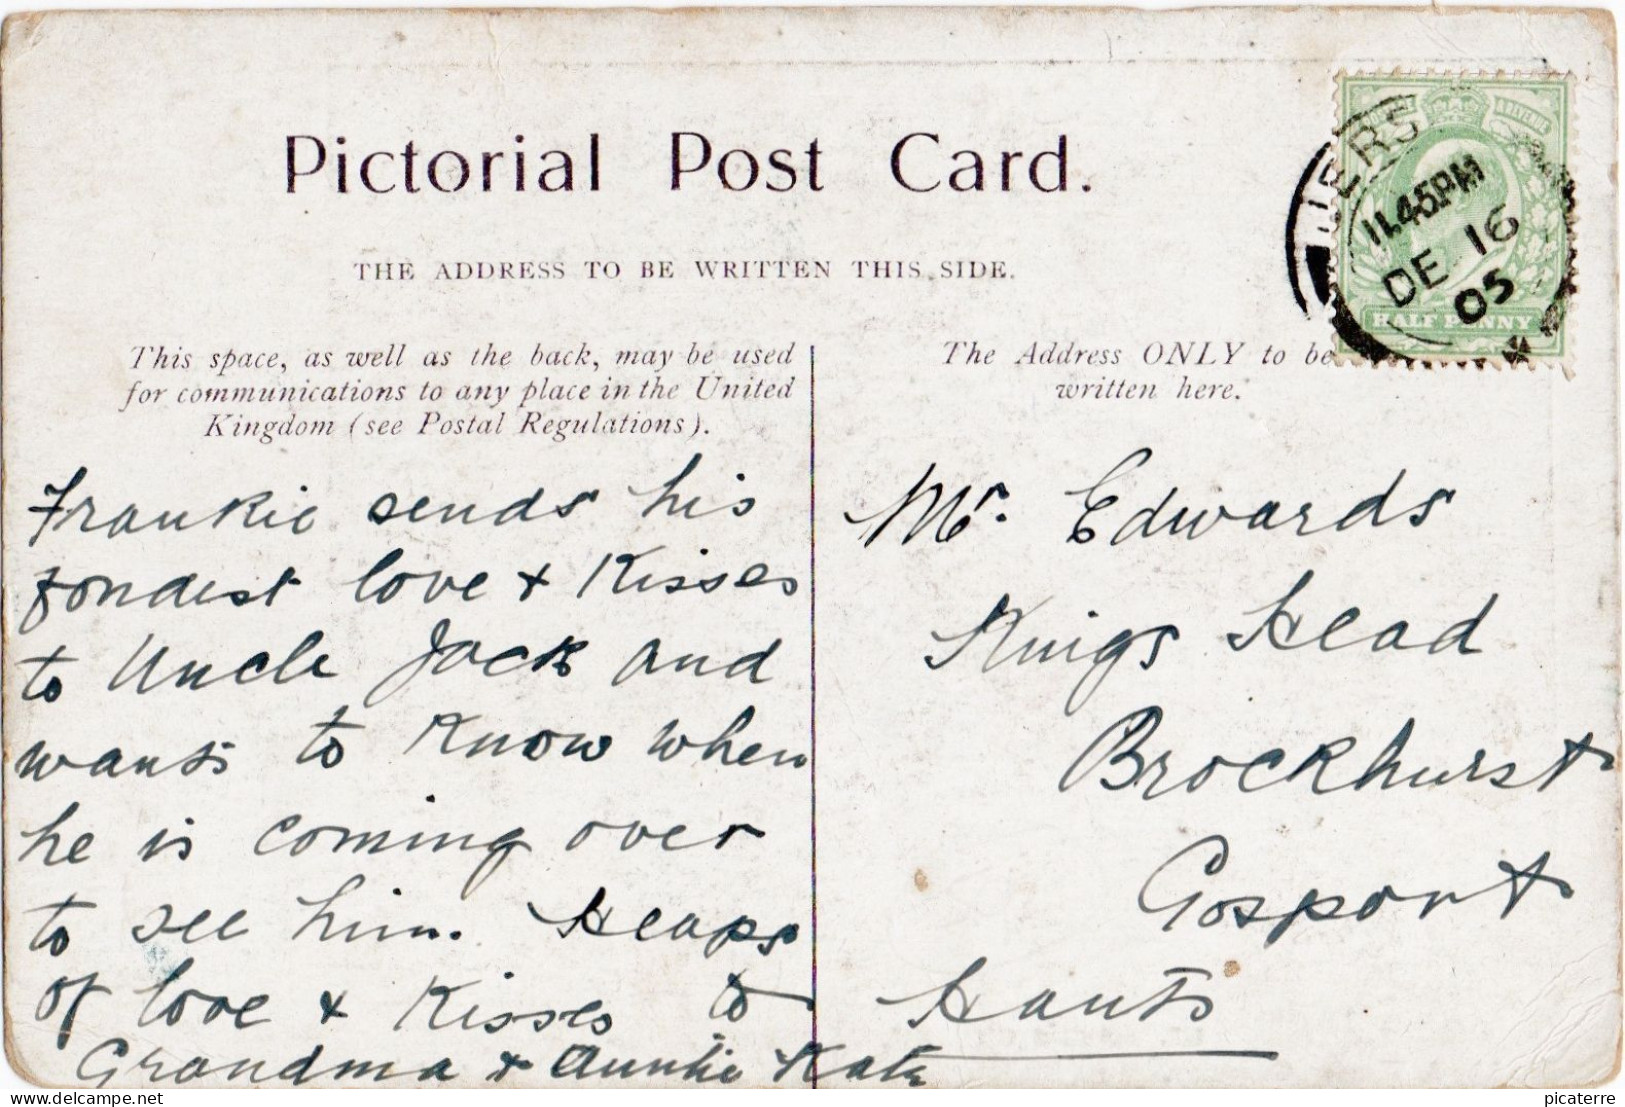 Pictorial Post Card.
THE ADDRESS TO BE WRITTEN THIS SIDE.
This space, as well as the back, may be used
for communications to any place in the United
Kingdom (see Postal Regulations).
The Address ONLY to be
written here.
11.45PM
DE 16
05
HALF PENNY
Frankie sends his
fondest love & Kisses
to Uncle Jack and
wants to Know when
he is coming over
to see him. Heaps
of love & Kisses to
Grandma & Auntie Kate
Mr. Edwards
Kings Head
Brockhurst
Gosport
Hants
delcampe.net
picaterre